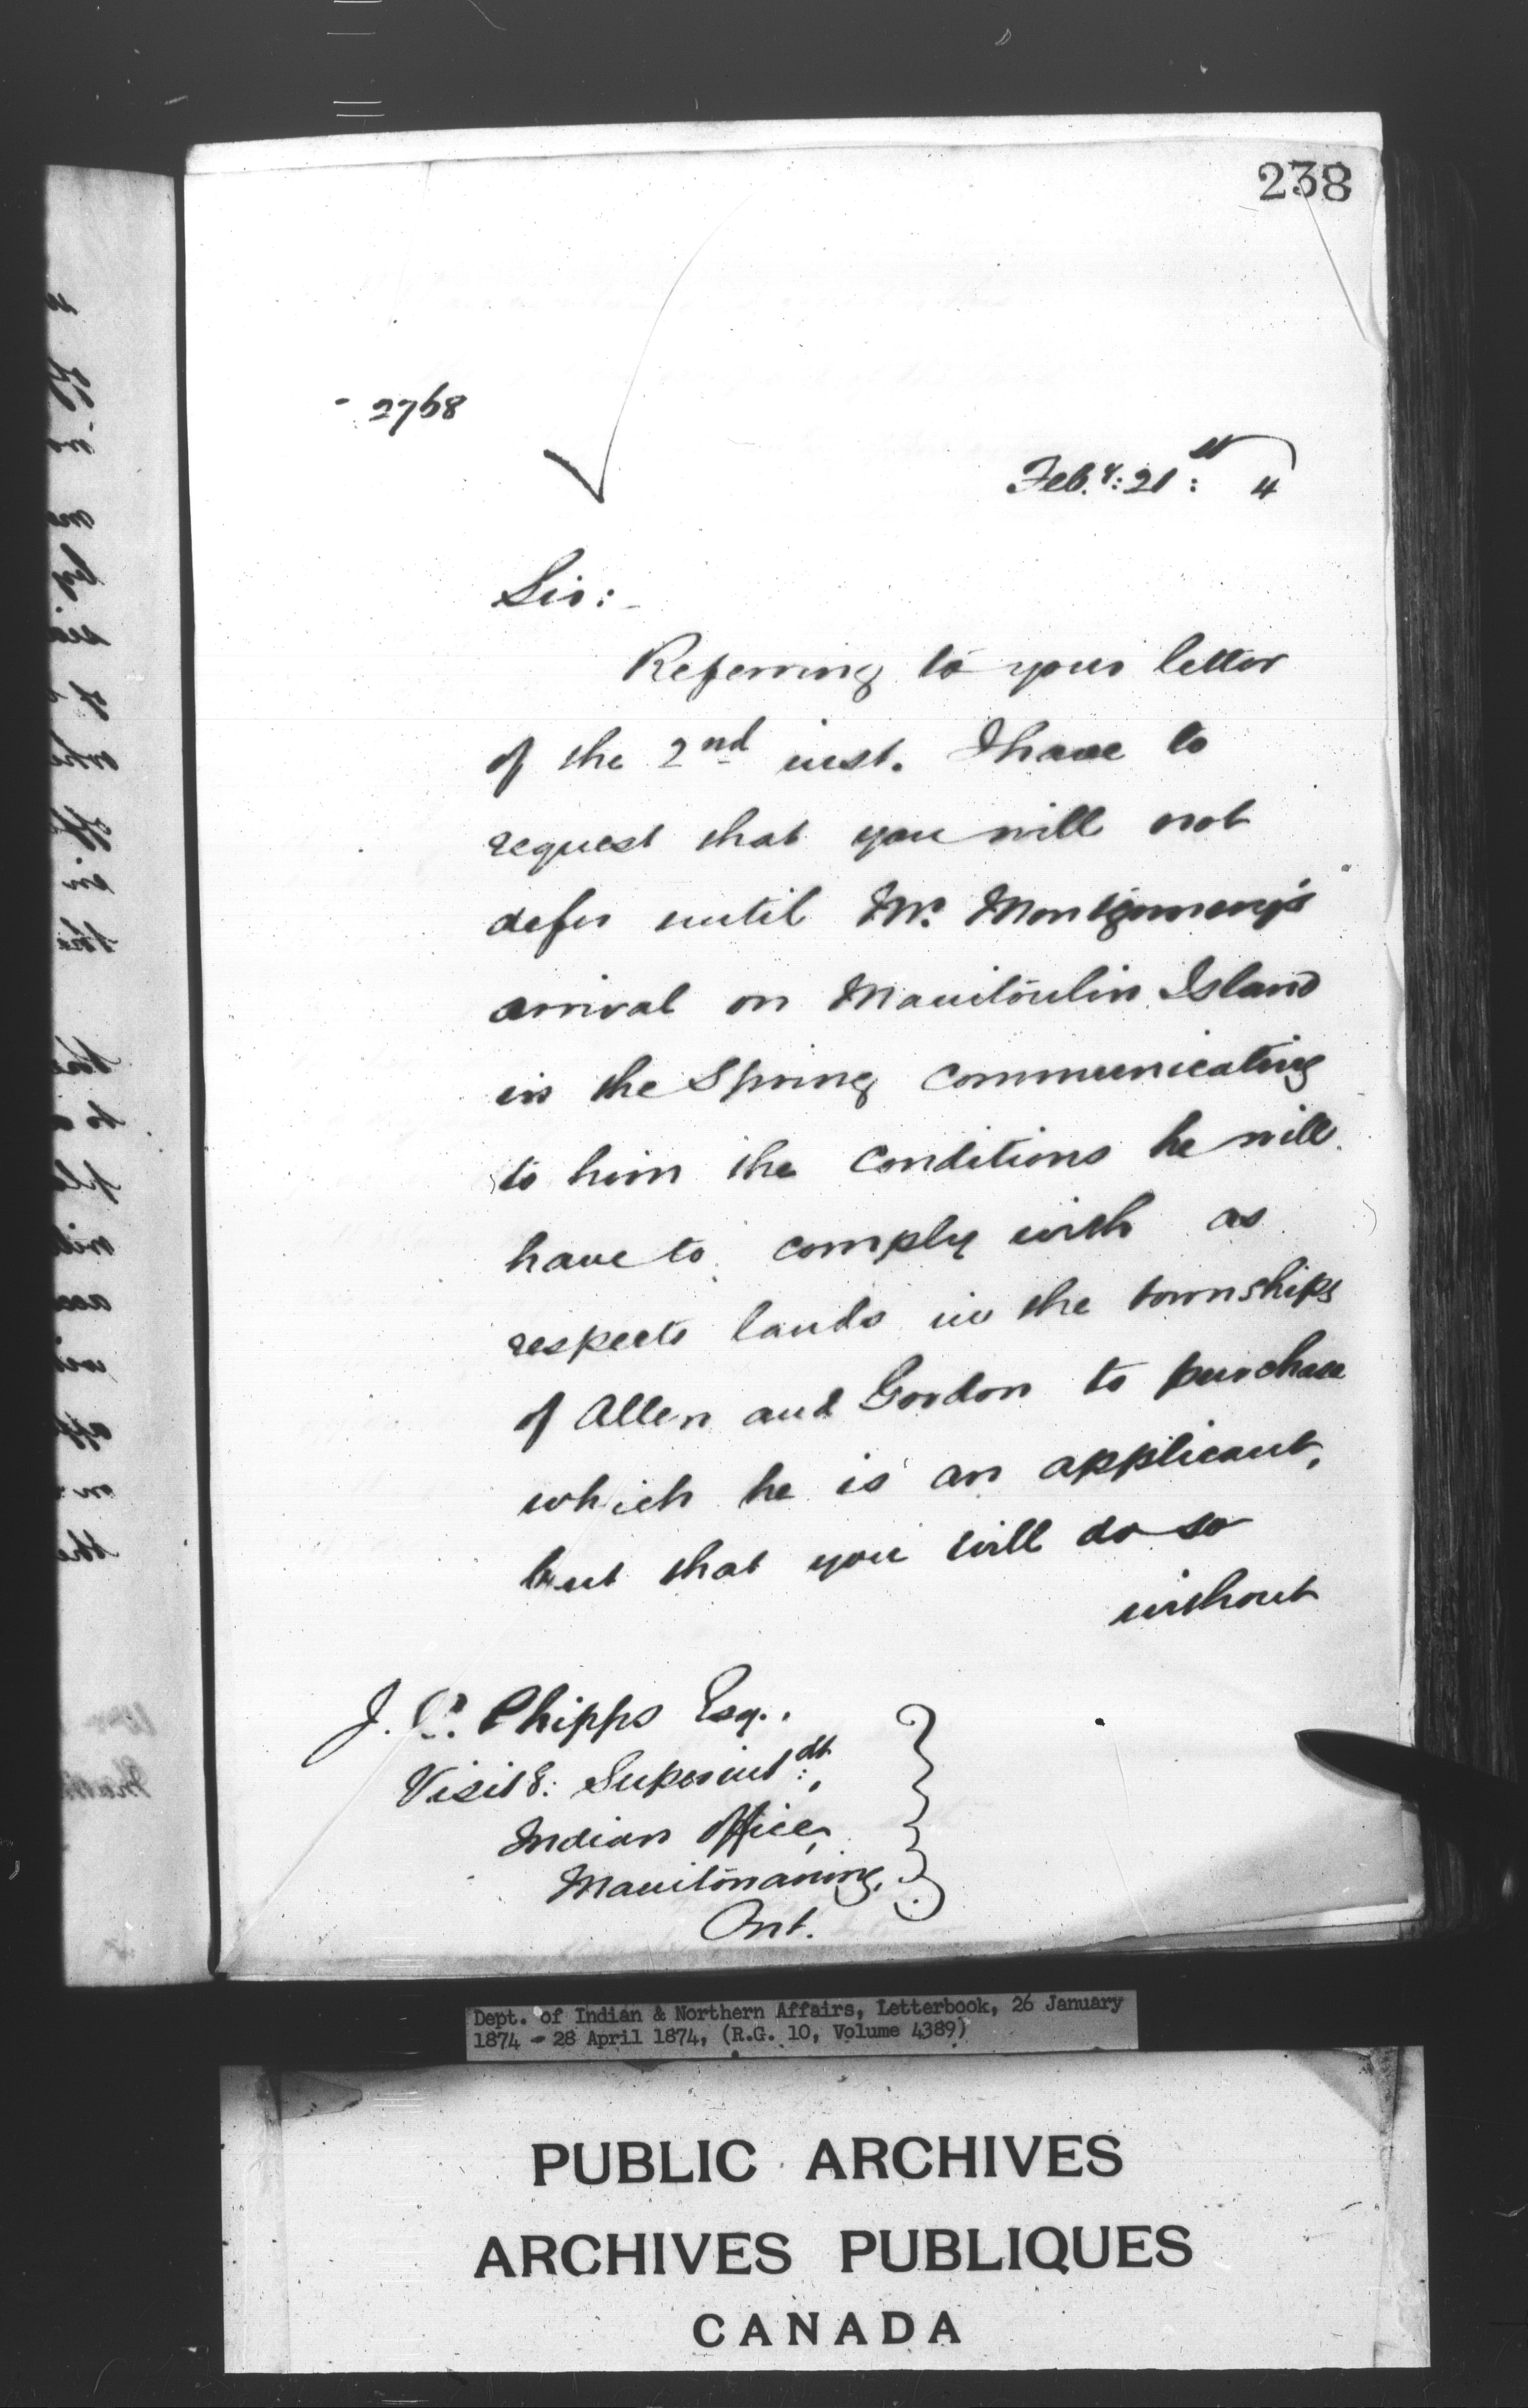 238
2768
Feb.y: 21st: 4
Sir:
Referring to your letter
of the 2nd inst. I have to
request that you will not
defer until Mr. Montgomery's
arrival on Manitoulin Island
in the Spring communicating
to him the conditions he will
have to comply with as
respects lands in the townships
of Allen and Gordon to purchase
which he is an applicant,
but that you will do so
without
J. C. Phipps Esq.,
Visitg: Superintdt:,
Indian Office,
Manitowaning,
Ont.
Dept. of Indian & Northern Affairs, Letterbook, 26 January
1874 - 28 April 1874, (R.G. 10, Volume 4389)
PUBLIC ARCHIVES
ARCHIVES PUBLIQUES
CANADA